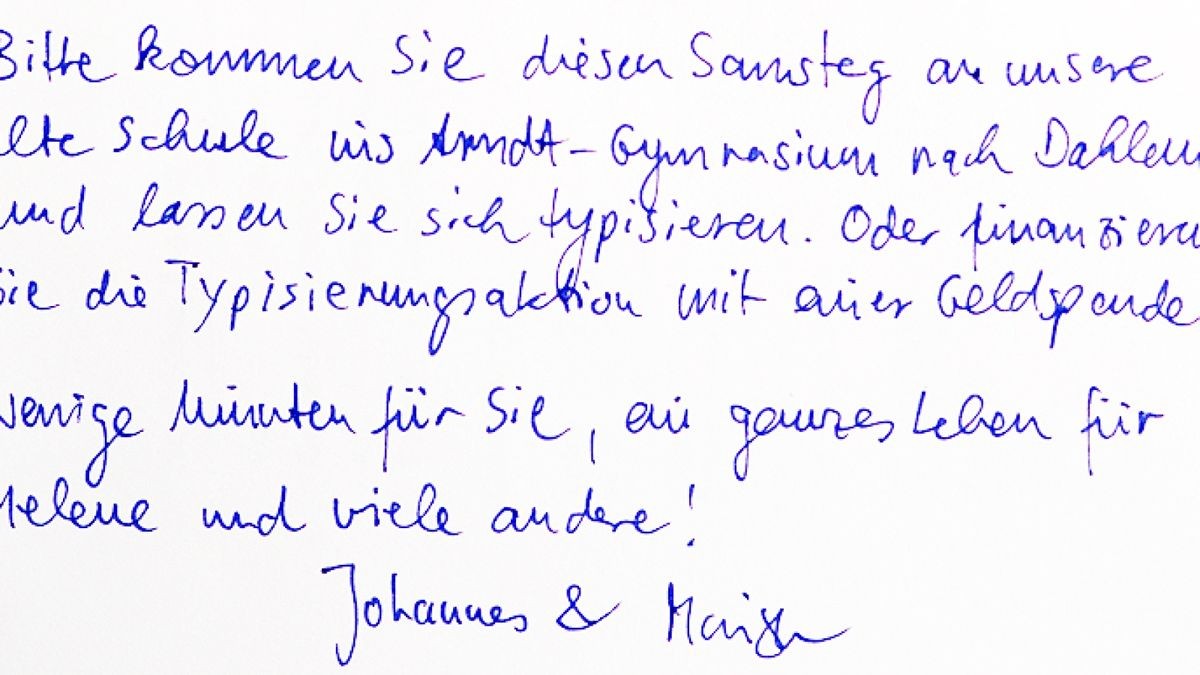 Bitte kommen Sie diesen Samstag an unsere
alte Schule ins Arndt-Gymnasium nach Dahlem
und lassen Sie sich typisieren. Oder finanzieren
Sie die Typisierungsaktion mit einer Geldspende
Wenige Minuten für Sie, ein ganzes Leben für
Helene und viele andere!
Johannes &